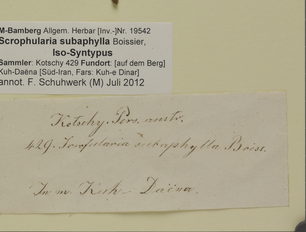 M-Bamberg Allgem. Herbar [Inv.-]Nr. 19542
Scrophularia subaphylla Boissier,
Iso-Syntypus
Sammler: Kotschy 429 Fundort: [auf dem Berg]
Kuh-Daëna [Süd-Iran, Fars: Kuh-e Dinar]
annot. F. Schuhwerk (M) Juli 2012
Kotschy. Pers. austr.
429. Scrofularia subaphylla Boiss.
In m. Kuh-Daëna.